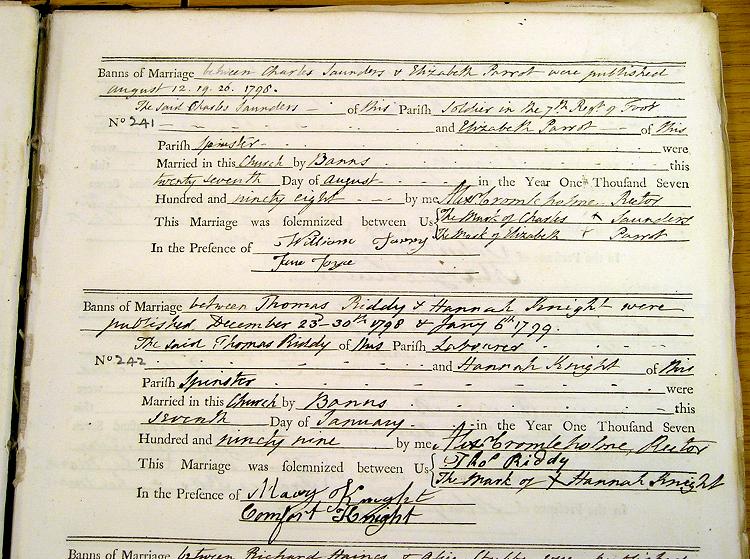 Banns of Marriage between Charles Saunders & Elizabeth Parrot were published
August 12. 19. 26. 1798.
The said Charles Saunders of this Parish Soldier in the 7th Regt of Foot
No 241 and Elizabeth Parrot of this
Parish Spinster were
Married in this Church by Banns this
twenty seventh Day of August in the Year One Thousand Seven
Hundred and ninety eight by me Alexr Crombleholme Rector
This Marriage was solemnized between Us The Mark of Charles + Saunders
The Mark of Elizabeth + Parrot
In the Presence of William
Banns of Marriage between Thomas Riddy & Hannah Knight were
published December 23d - 30th 1798 & Jany 6th 1799.
The said Thomas Riddy of this Parish Labourer
No 242 and Hannah Knight of this
Parish Spinster were
Married in this Church by Banns this
seventh Day of January in the Year One Thousand Seven
Hundred and ninety nine by me Alexr Crombleholme, Rector
This Marriage was solemnized between Us Thos Riddy
The Mark of + Hannah Knight
In the Presence of Mary Knight
Comfort Knight
Banns of Marriage between Richard Haines & Alice